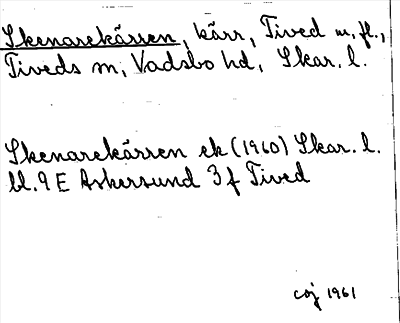 Skenarekärren, kärr, Tived m. fl.,
Tiveds sn, Vadsbo hd, Skar. l.
Skenarekärren ek (1960) Skar. l.
bl. 9 E Askersund 3 f Tived
coj 1961